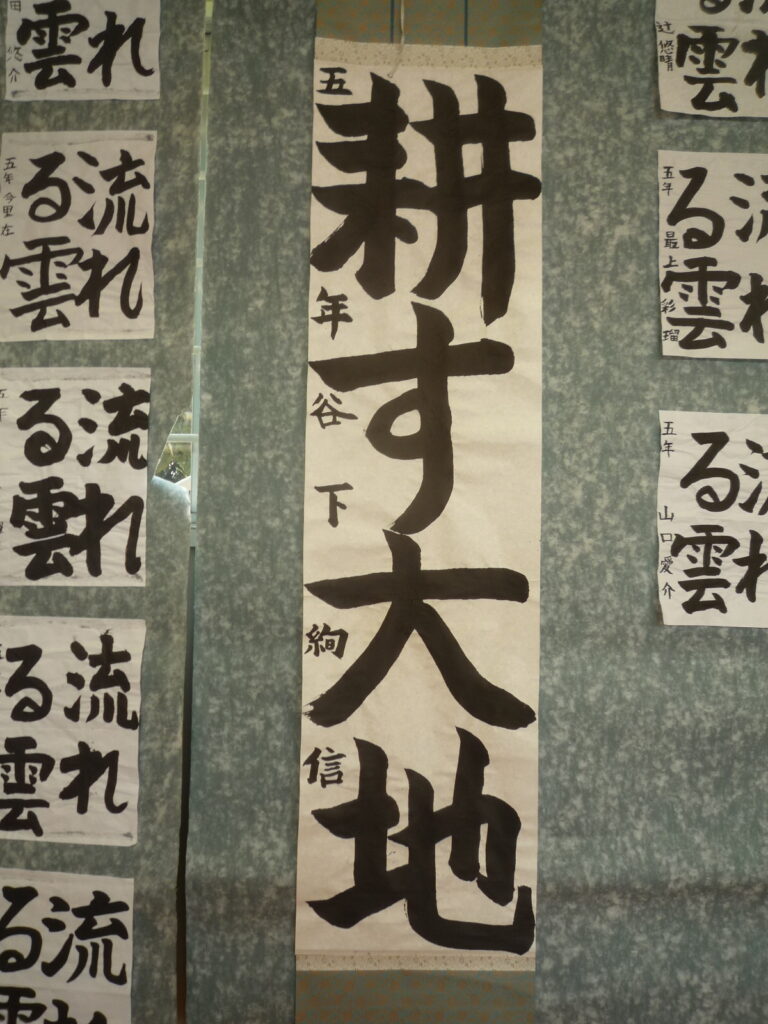 耕す大地
五年谷下絢信
れ
雲
辻悠晴
流れ
る雲
五年 最上彩瑠
流れ
る雲
五年 山口愛介
れ
雲
田悠介
流れ
る雲
五年 今里
流れ
る雲
流れ
る雲
流れ
る雲